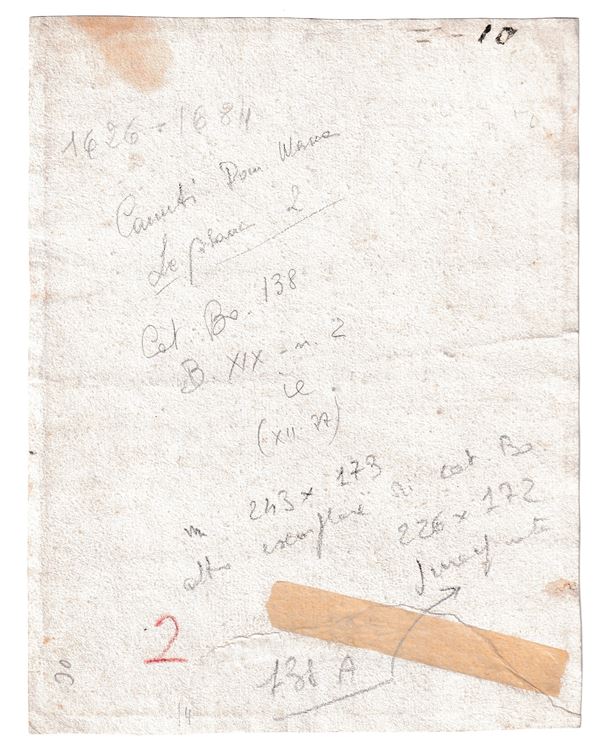 10
1626 - 1684
Canuti Dom Maria
Le 2
Cat. Bo. 138
B. XIX - n. 2
ie
(XII. 77)
243 x 173
altro esemplare di cat. Bo
226 x 172
2
138 A